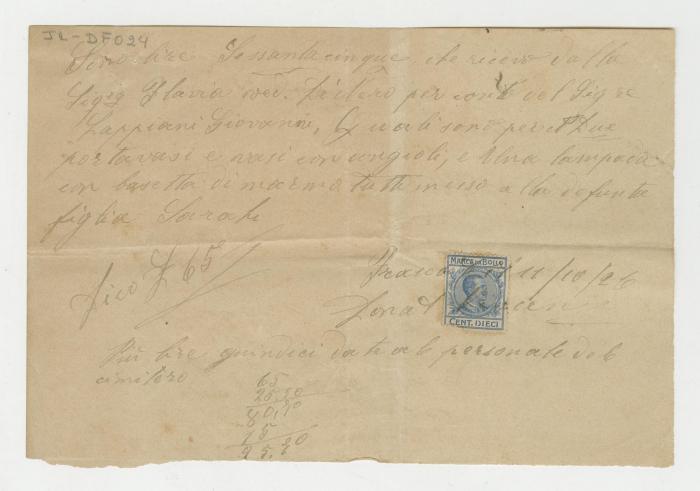 JL-DF024
Sono lire Sessantacinque che ricevo dalla
Sig.ra Flavia ved. per conto del Sig.re
Zappiani Giovanni, Quali sono per Due
portavasi e vasi con angioli, e Una lampada
con basetta di marmo tutti messo alla defunta
figlia Sarah
Dico £ 65
11/10/26
MARCA DA BOLLO
CENT. DIECI
Più lire quindici dati al personale del
cimitero
65
80,20
15
95,20